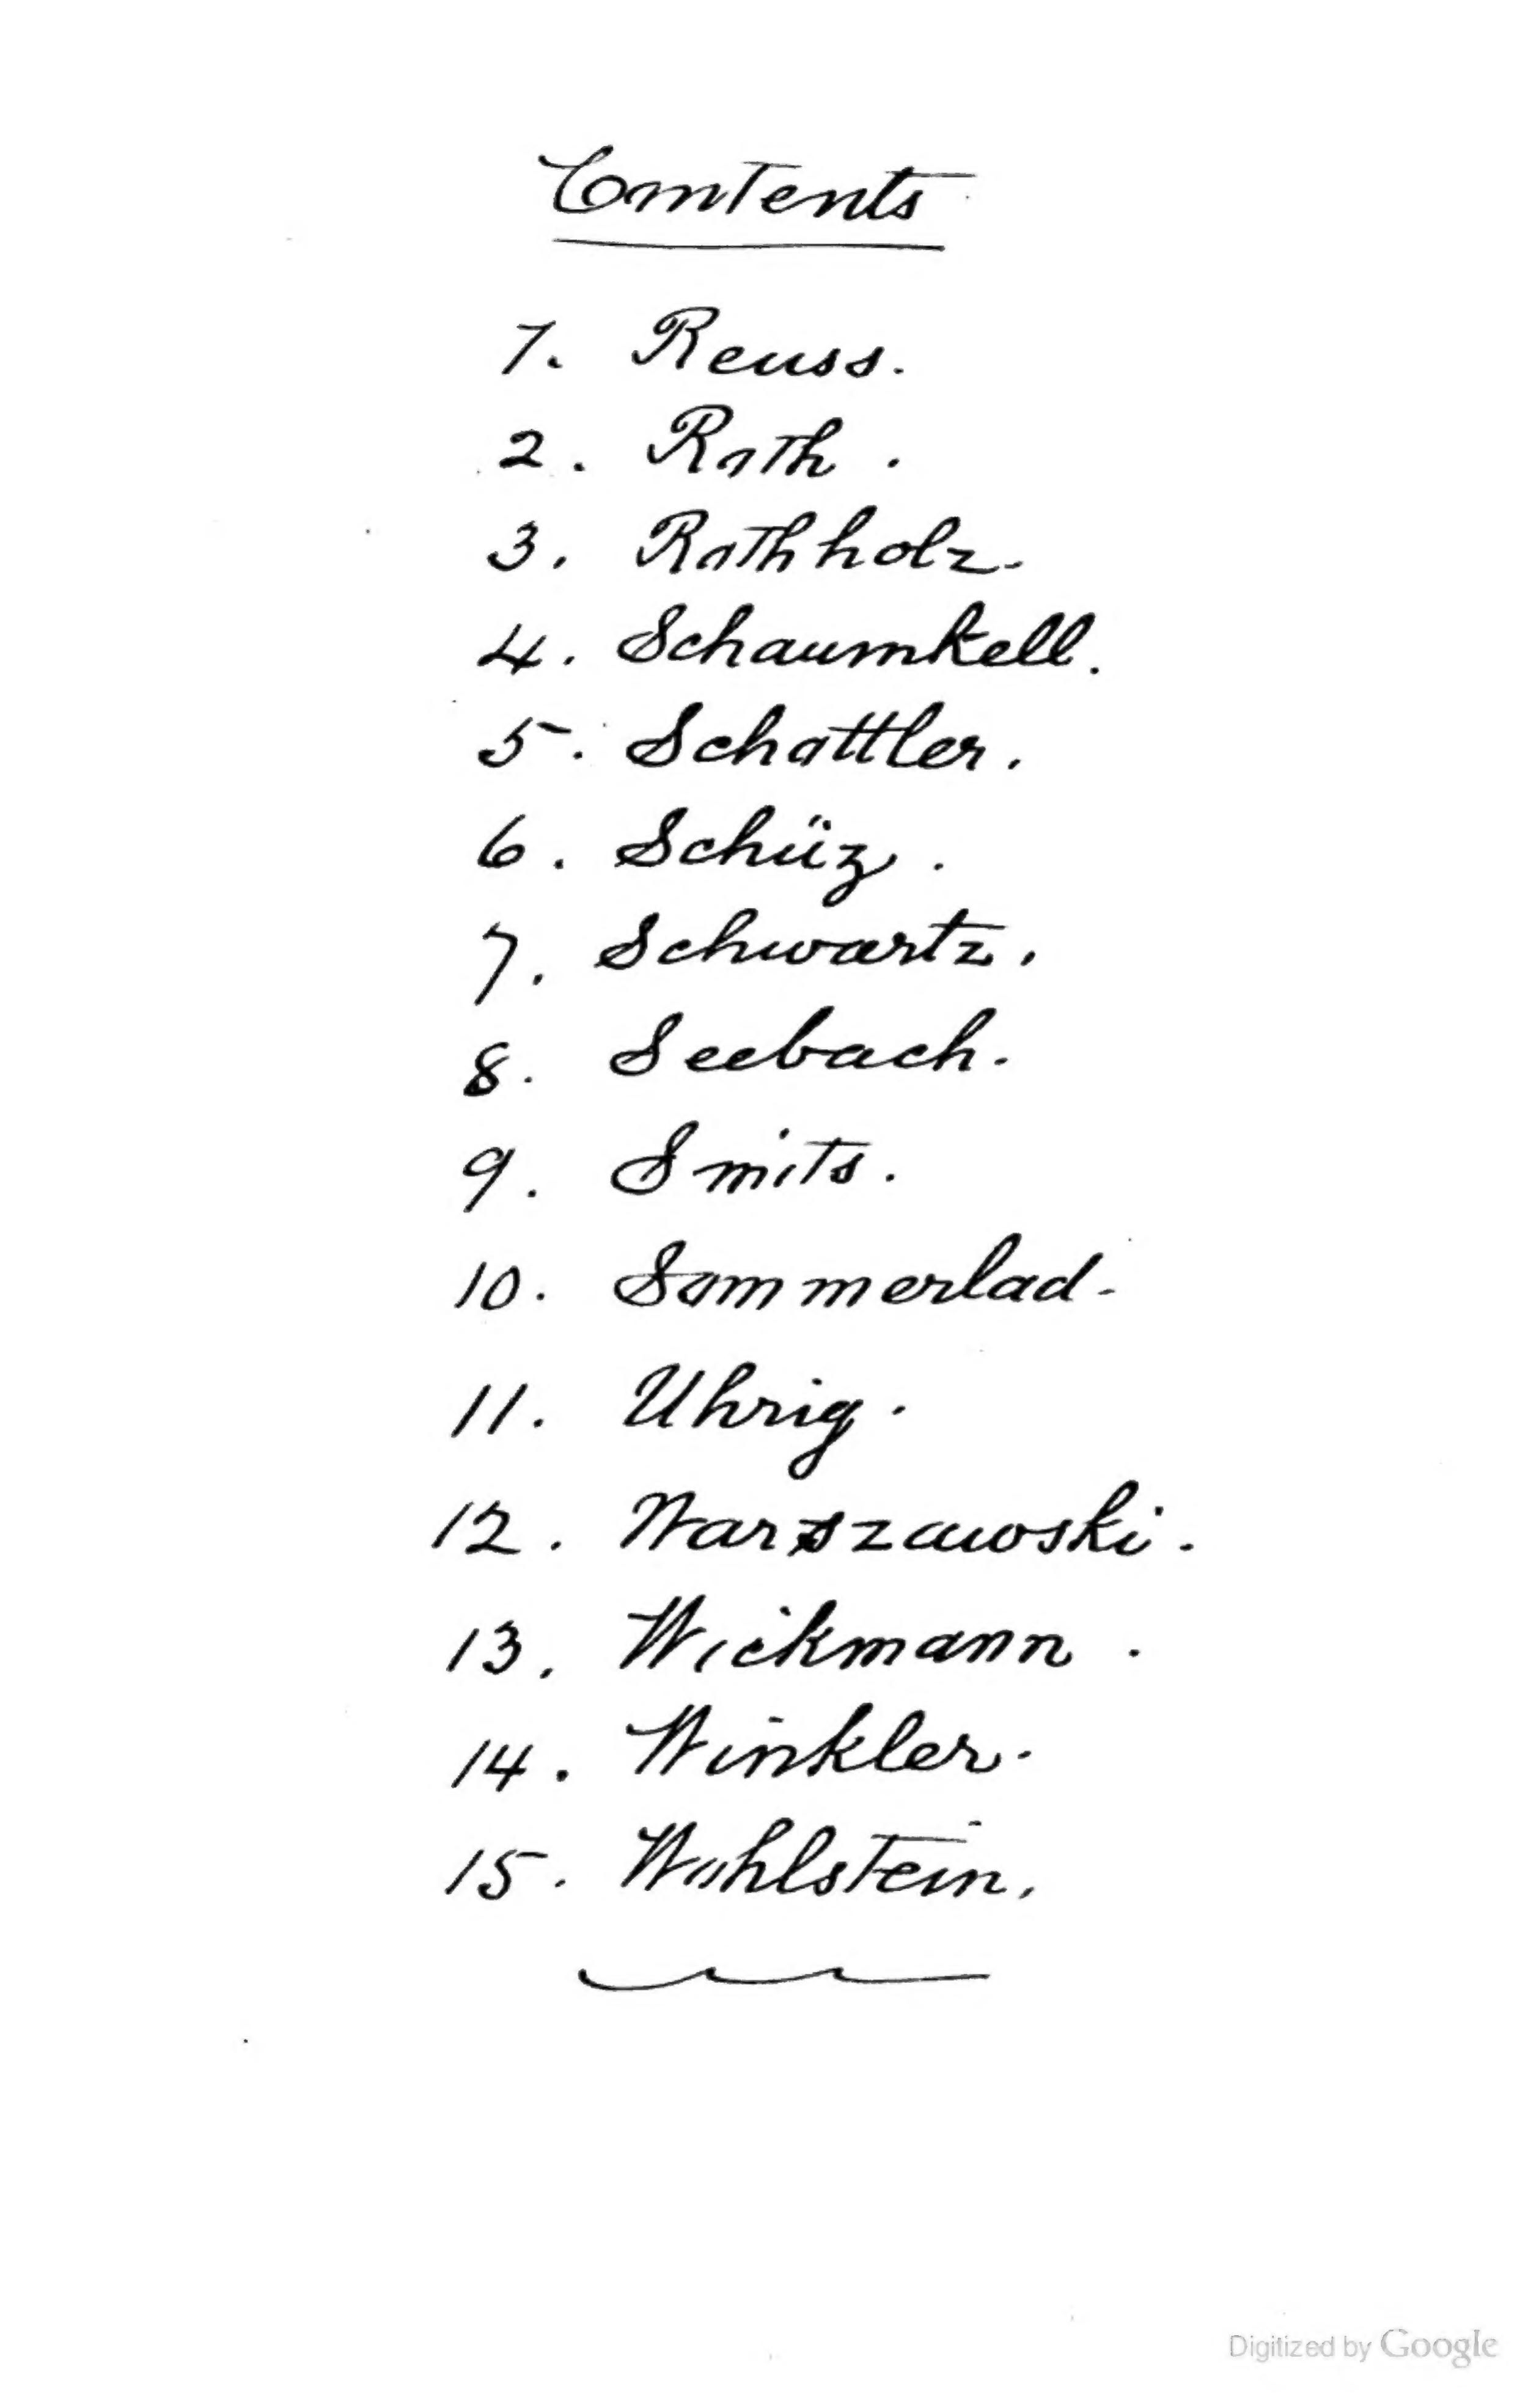 Contents
1. Reuss.
2. Roth.
3. Rothholz.
4. Schaumkell.
5. Schottler.
6. Schüz.
7. Schwartz.
8. Seebach.
9. Smits.
10. Sommerlad.
11. Uhrig.
12. Warszawski.
13. Wickmann.
14. Winkler.
15. Wohlstein.
Digitized by Google